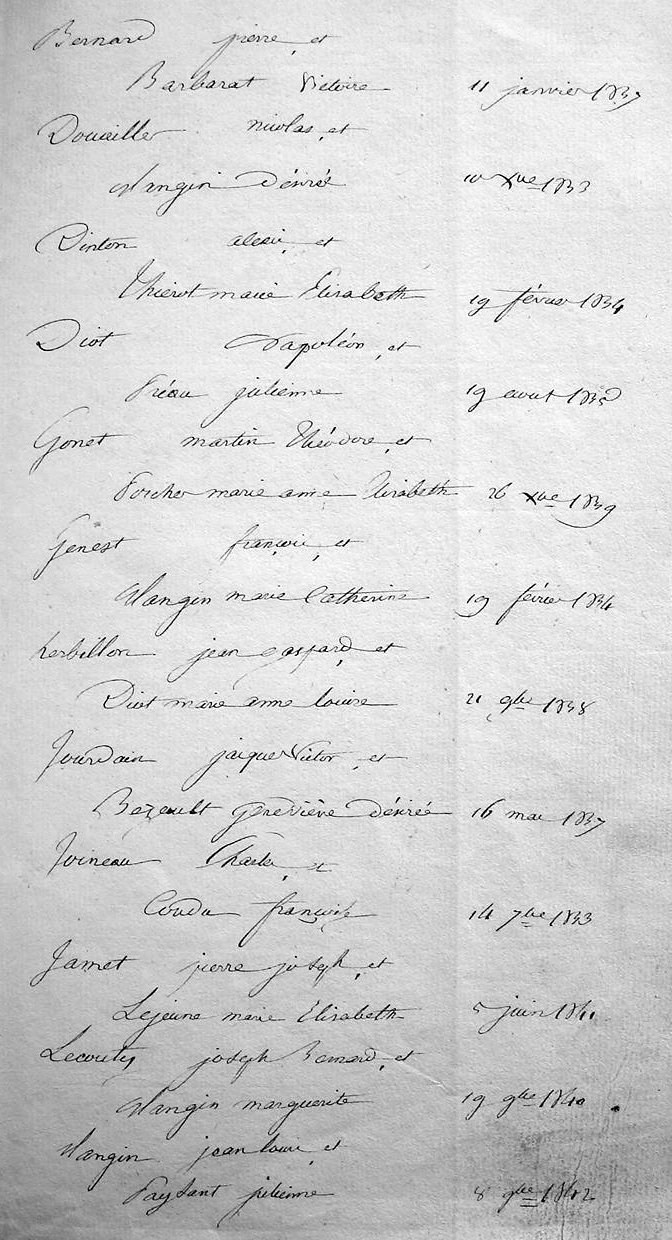 Bernard pierre, et
Barbarat Victoire 11 janvier 1837
Douailler nicolas, et
Mangin Désiré 10 Xbre 1833
Dinton alexis, et
Thierot marie Elisabeth 19 février 1834
Diot Napoléon, et
Préau julienne 19 aout 1835
Gonet martin Théodore, et
Porcher marie anne Elisabeth 26 Xbre 1839
Genest françois, et
Mangin marie Catherine 19 février 1834
herbillon jean gaspard, et
Diot marie anne louise 21 9bre 1838
Jourdain jacques Victor, et
Bezeault geneviève désirée 16 mai 1837
Joineau Charles, et
Coudu françoise 14 7bre 1833
Jamet pierre joseph, et
Lejeune marie Elisabeth 5 juin 1841
Lecouty joseph Bernard, et
Mangin marguerite 19 9bre 1840
Mangin jean louis, et
Paysant julienne 8 9bre 1842